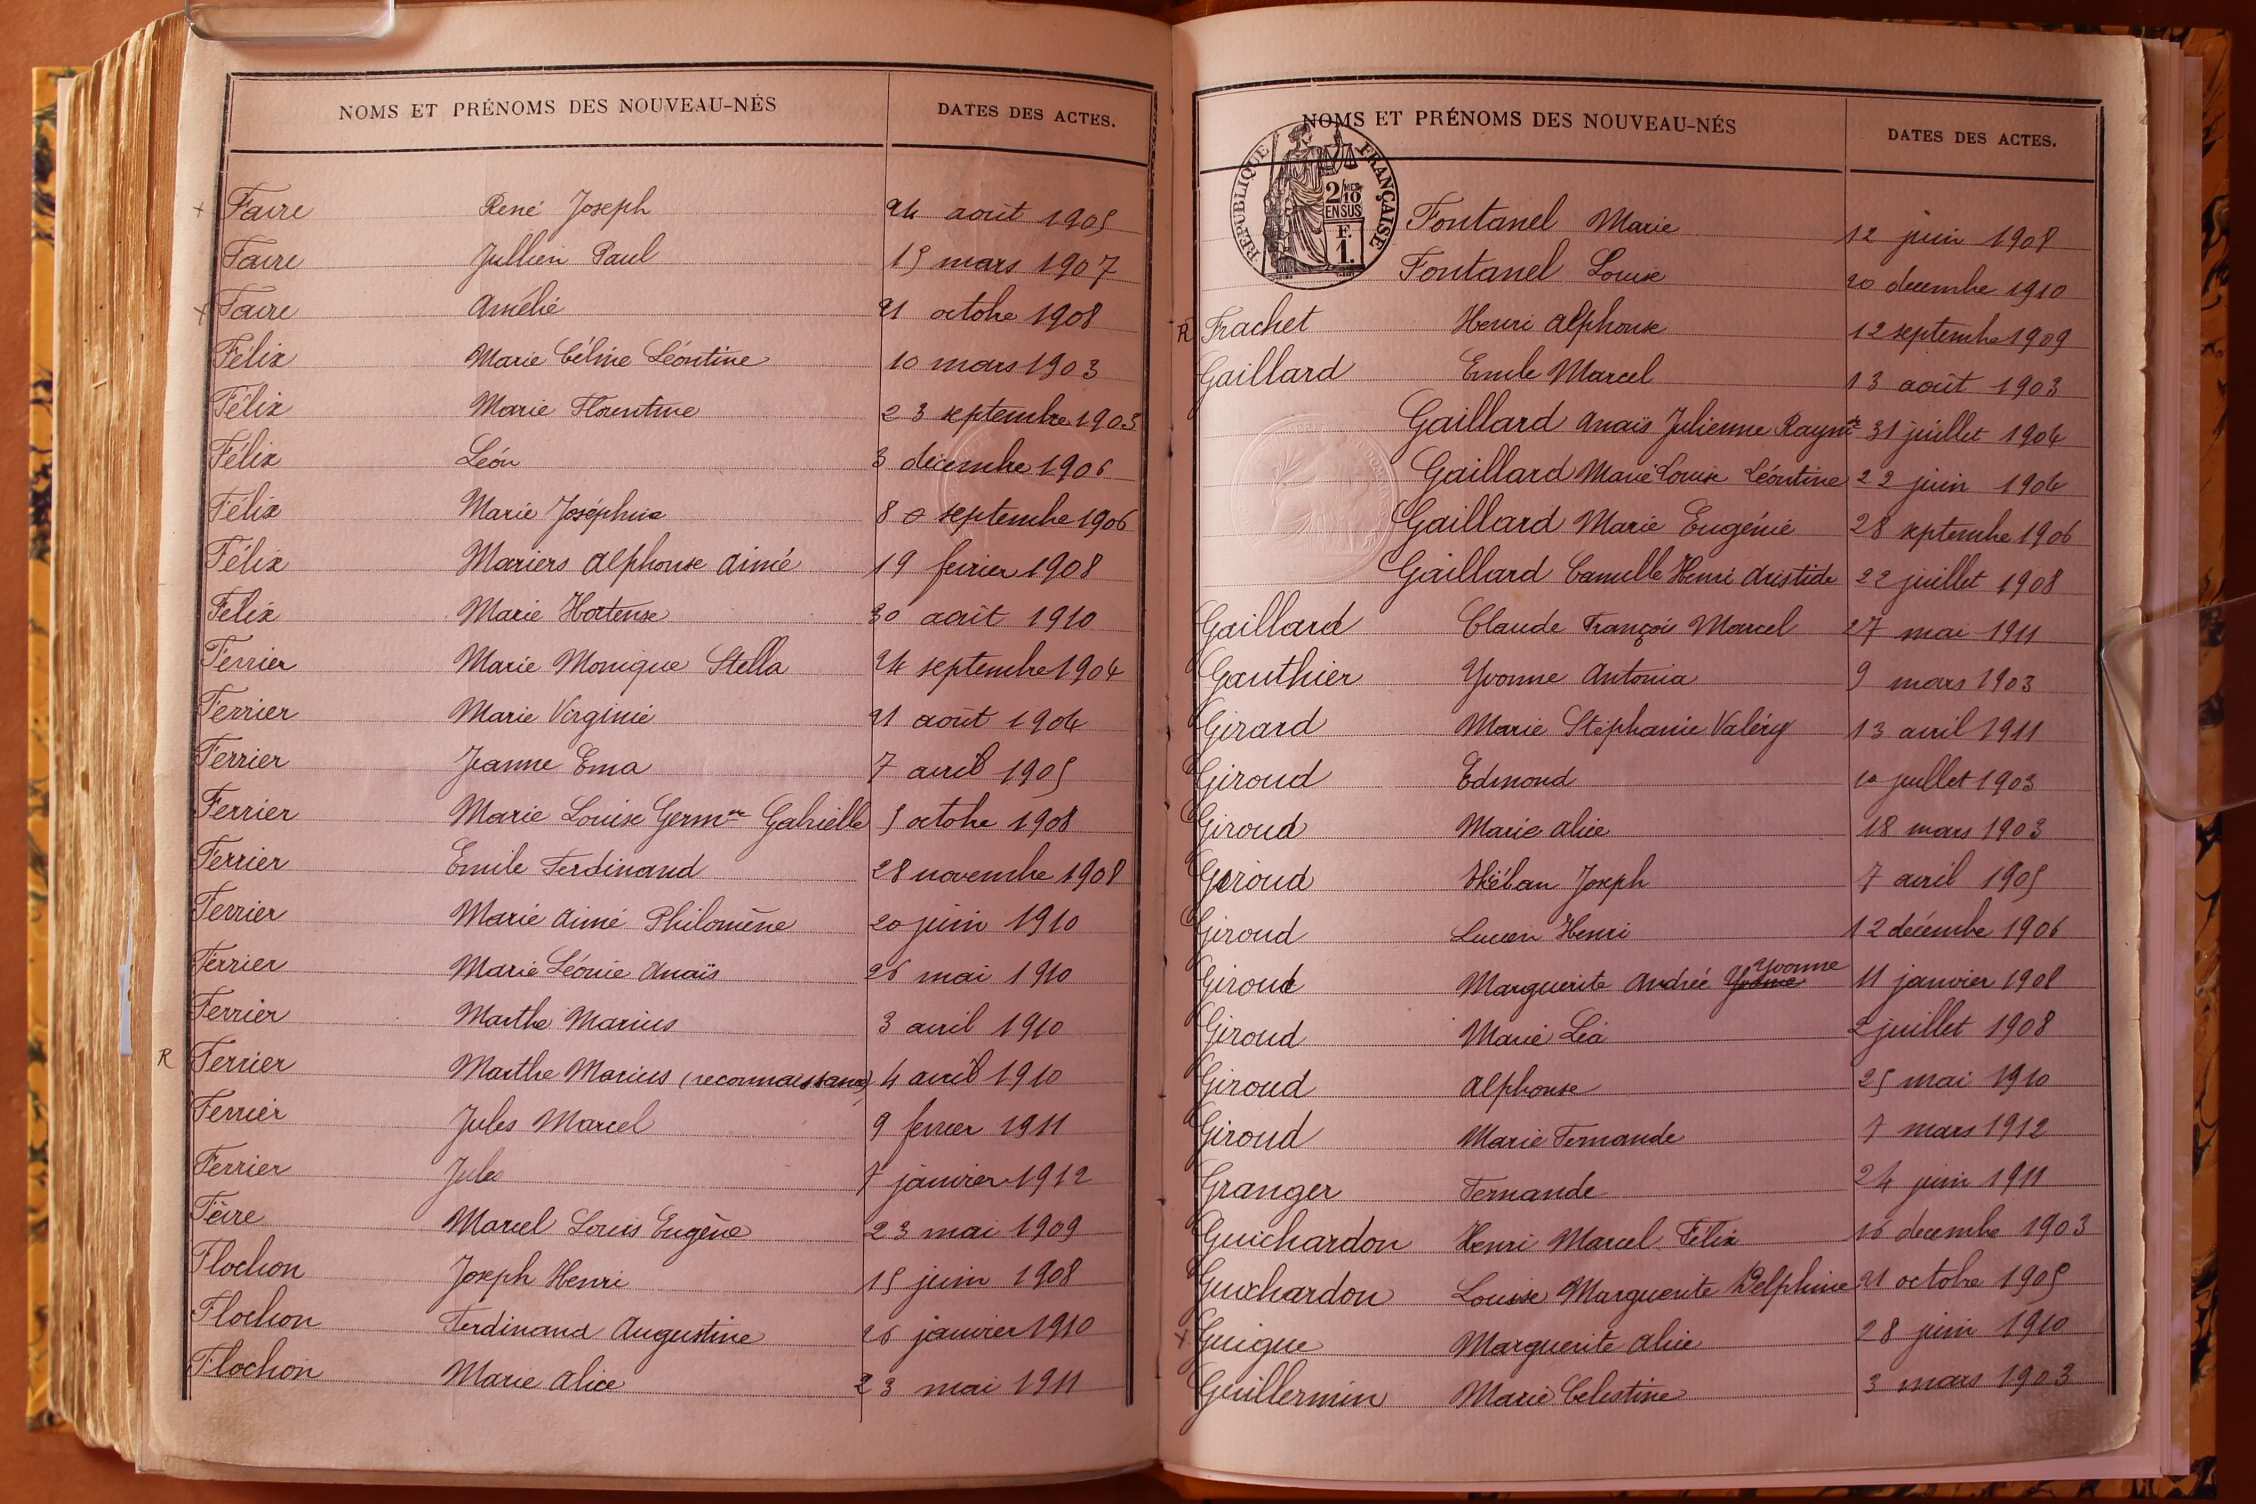 NOMS ET PRÉNOMS DES NOUVEAU-NÉS DATES DES ACTES.
x Faure René Joseph 24 août 1905
Faure Jullien Paul 15 mars 1907
x Faure Amélie 21 octobre 1908
Félix Marie Céline Léontine 10 mars 1903
Félix Marie Florentine 23 septembre 1903
Félix Léon 3 décembre 1906
Félix Marie Joséphine 8 septembre 1906
Félix Mariers Alphonse Aimé 19 février 1908
Félix Marie Hortense 30 août 1910
Ferrier Marie Monique Stella 24 septembre 1904
Ferrier Marie Virginie 21 août 1904
Ferrier Jeanne Ema 7 avril 1905
Ferrier Marie Louise Germne Gabrielle 5 octobre 1908
Ferrier Emile Ferdinand 28 novembre 1908
Ferrier Marie Aimé Philomène 20 juin 1910
Ferrier Marie Léonie Anaïs 26 mai 1910
Ferrier Marthe Marius 3 avril 1910
R Ferrier Marthe Marius (reconnaissance) 4 avril 1910
Ferrier Jules Marcel 9 fevrier 1911
Ferrier Jules 7 janvier 1912
Fèvre Marcel Louis Eugène 23 mai 1909
Flochon Joseph Henri 15 juin 1908
Flochon Ferdinand Augustine 26 janvier 1910
Flochon Marie Alice 23 mai 1911
NOMS ET PRÉNOMS DES NOUVEAU-NÉS DATES DES ACTES.
RÉPUBLIQUE FRANÇAISE
2/10
EN SUS
F.
1.
Fontanel Marie 12 juin 1908
Fontanel Louise 20 decembre 1910
R Frachet Henri Alphonse 12 septembre 1909
Gaillard Emile Marcel 13 août 1903
Gaillard Anaïs Julienne Raymde 31 juillet 1904
Gaillard Marie Louise Léontine 22 juin 1904
Gaillard Marie Eugénie 28 septembre 1906
Gaillard Camille Henri Aristide 22 juillet 1908
Gaillard Claude François Marcel 27 mai 1911
Gauthier Yvonne Antonia 9 mars 1903
Girard Marie Stéphanie Valéry 13 avril 1911
Giroud Edmond 10 juillet 1903
Giroud Marie Alice 18 mars 1903
Giroud Joseph 7 avril 1905
Giroud Lucien Henri 12 décembre 1906
Giroud Marguerite Andrée Yvonne 11 janvier 1908
Giroud Marie Léa 2 juillet 1908
Giroud Alphonse 25 mai 1910
Giroud Marie Fernande 7 mars 1912
Granger Fernande 24 juin 1911
Guichardon Henri Marcel Félix 16 decembre 1903
Guichardon Louise Marguerite Delphine 21 octobre 1905
x Guigue Marguerite Alice 28 juin 1910
Guillermin Marie Celestine 3 mars 1903